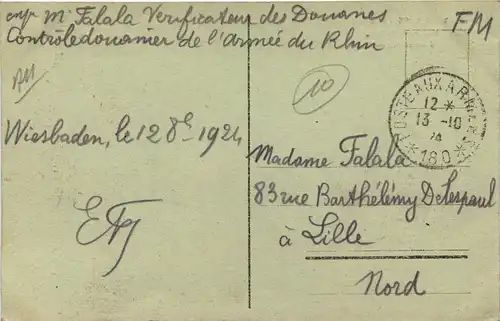 exp M. Falala Vérificateur des Douanes
Contrôle douanier de l'armée du Rhin
FM
10
POSTE AUX ARMEES
12 *
13 -10
24
* 180 *
Wiesbaden, le 12 8e 1924
Madame Falala
83 rue Barthélémy Delespaul
à Lille
Nord